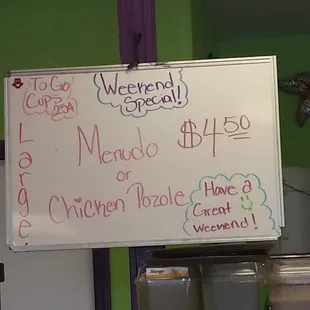 To Go
Cups
25¢
Weekend
Special!
Large
Menudo $4.50
or
Chicken Pozole
Have a
Great
Weekend!